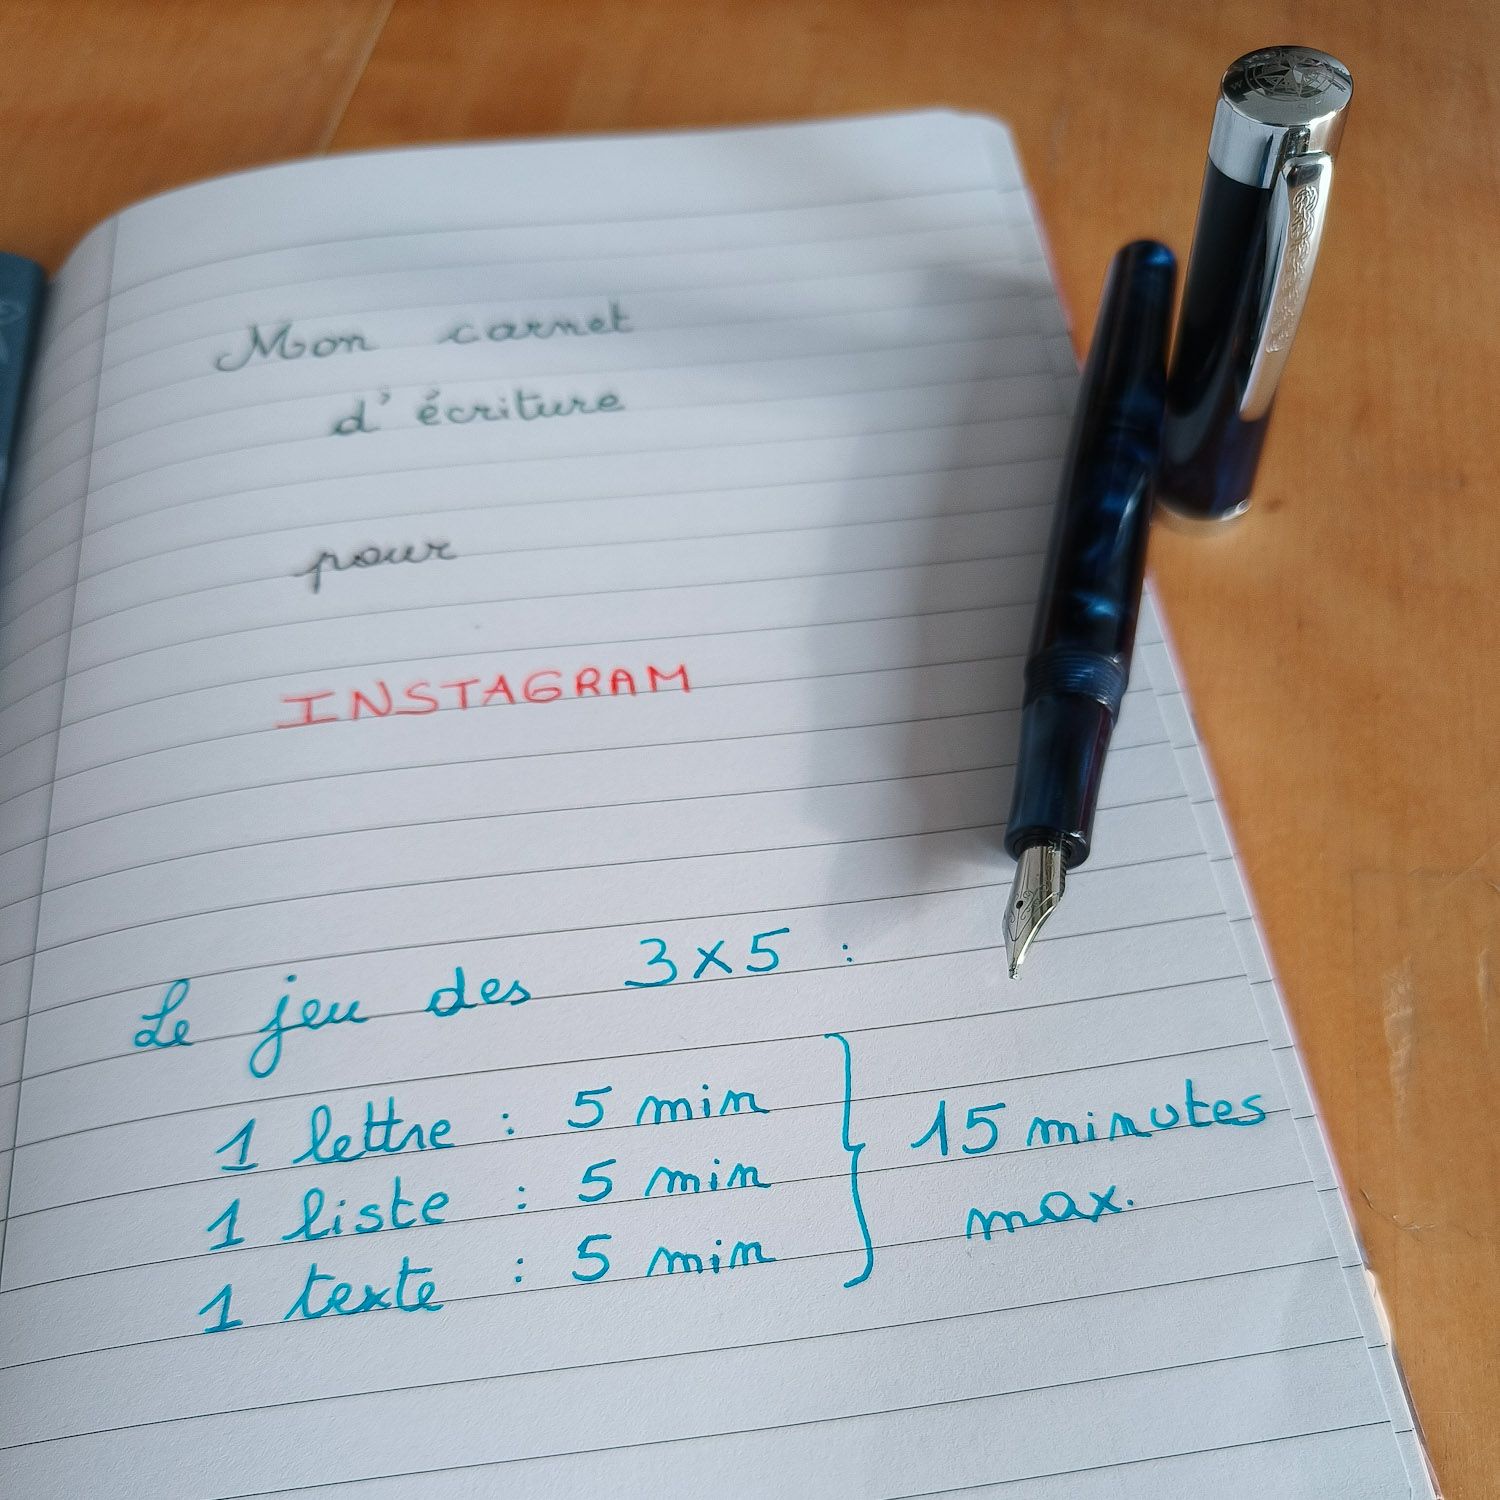 Mon carnet
d'écriture
pour
INSTAGRAM
Le jeu des 3x5 :
1 lettre : 5 min
1 liste : 5 min
1 texte : 5 min
15 minutes
max.